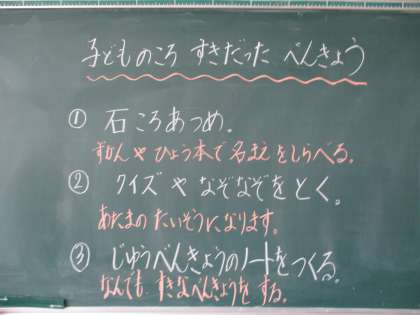 子どものころ すきだった べんきょう
① 石ころあつめ。
ずかんやひょう本で名まえをしらべる。
② クイズや なぞなぞをとく。
あたまの たいそうになります。
③ じゆうべんきょうのノートをつくる。
なんでも すきなべんきょうを する。